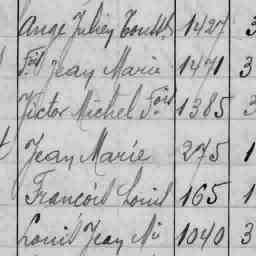 Ange Julien Touss.t 1427 3
F.ois Jean Marie 1471 3
Victor Michel F.ois 1385 3
Jean Marie 275 1
François Louis 165 1
Louis Jean M.ie 1040 3